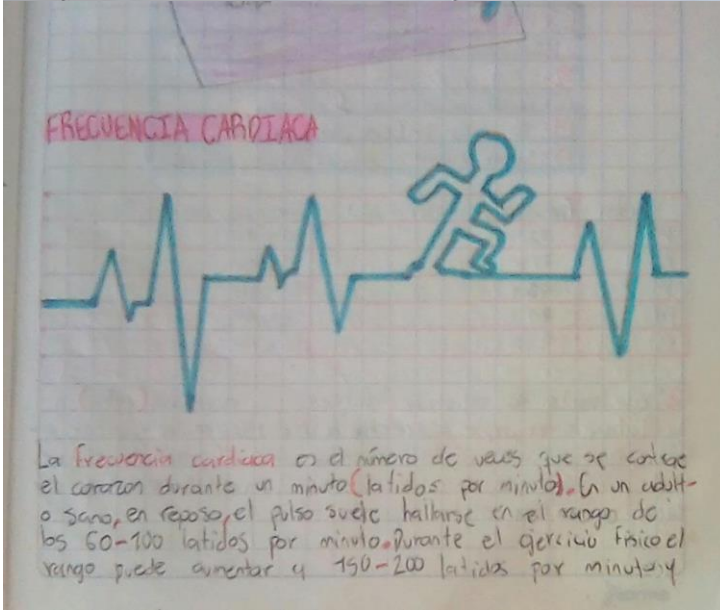 FRECUENCIA CARDIACA
La frecuencia cardiaca es el número de veces que se contrae
el corazon durante un minuto (latidos por minuto). En un adult-
o sano, en reposo, el pulso suele hallarse en el rango de
los 60-100 latidos por minuto. Durante el ejercicio físico el
rango puede aumentar a 150-200 latidos por minuto y